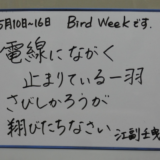 5月10日~16日　Bird Weekです.
電線にながく
止まりている一羽
さびしかろうが
翔びたちなさい
江副士曳